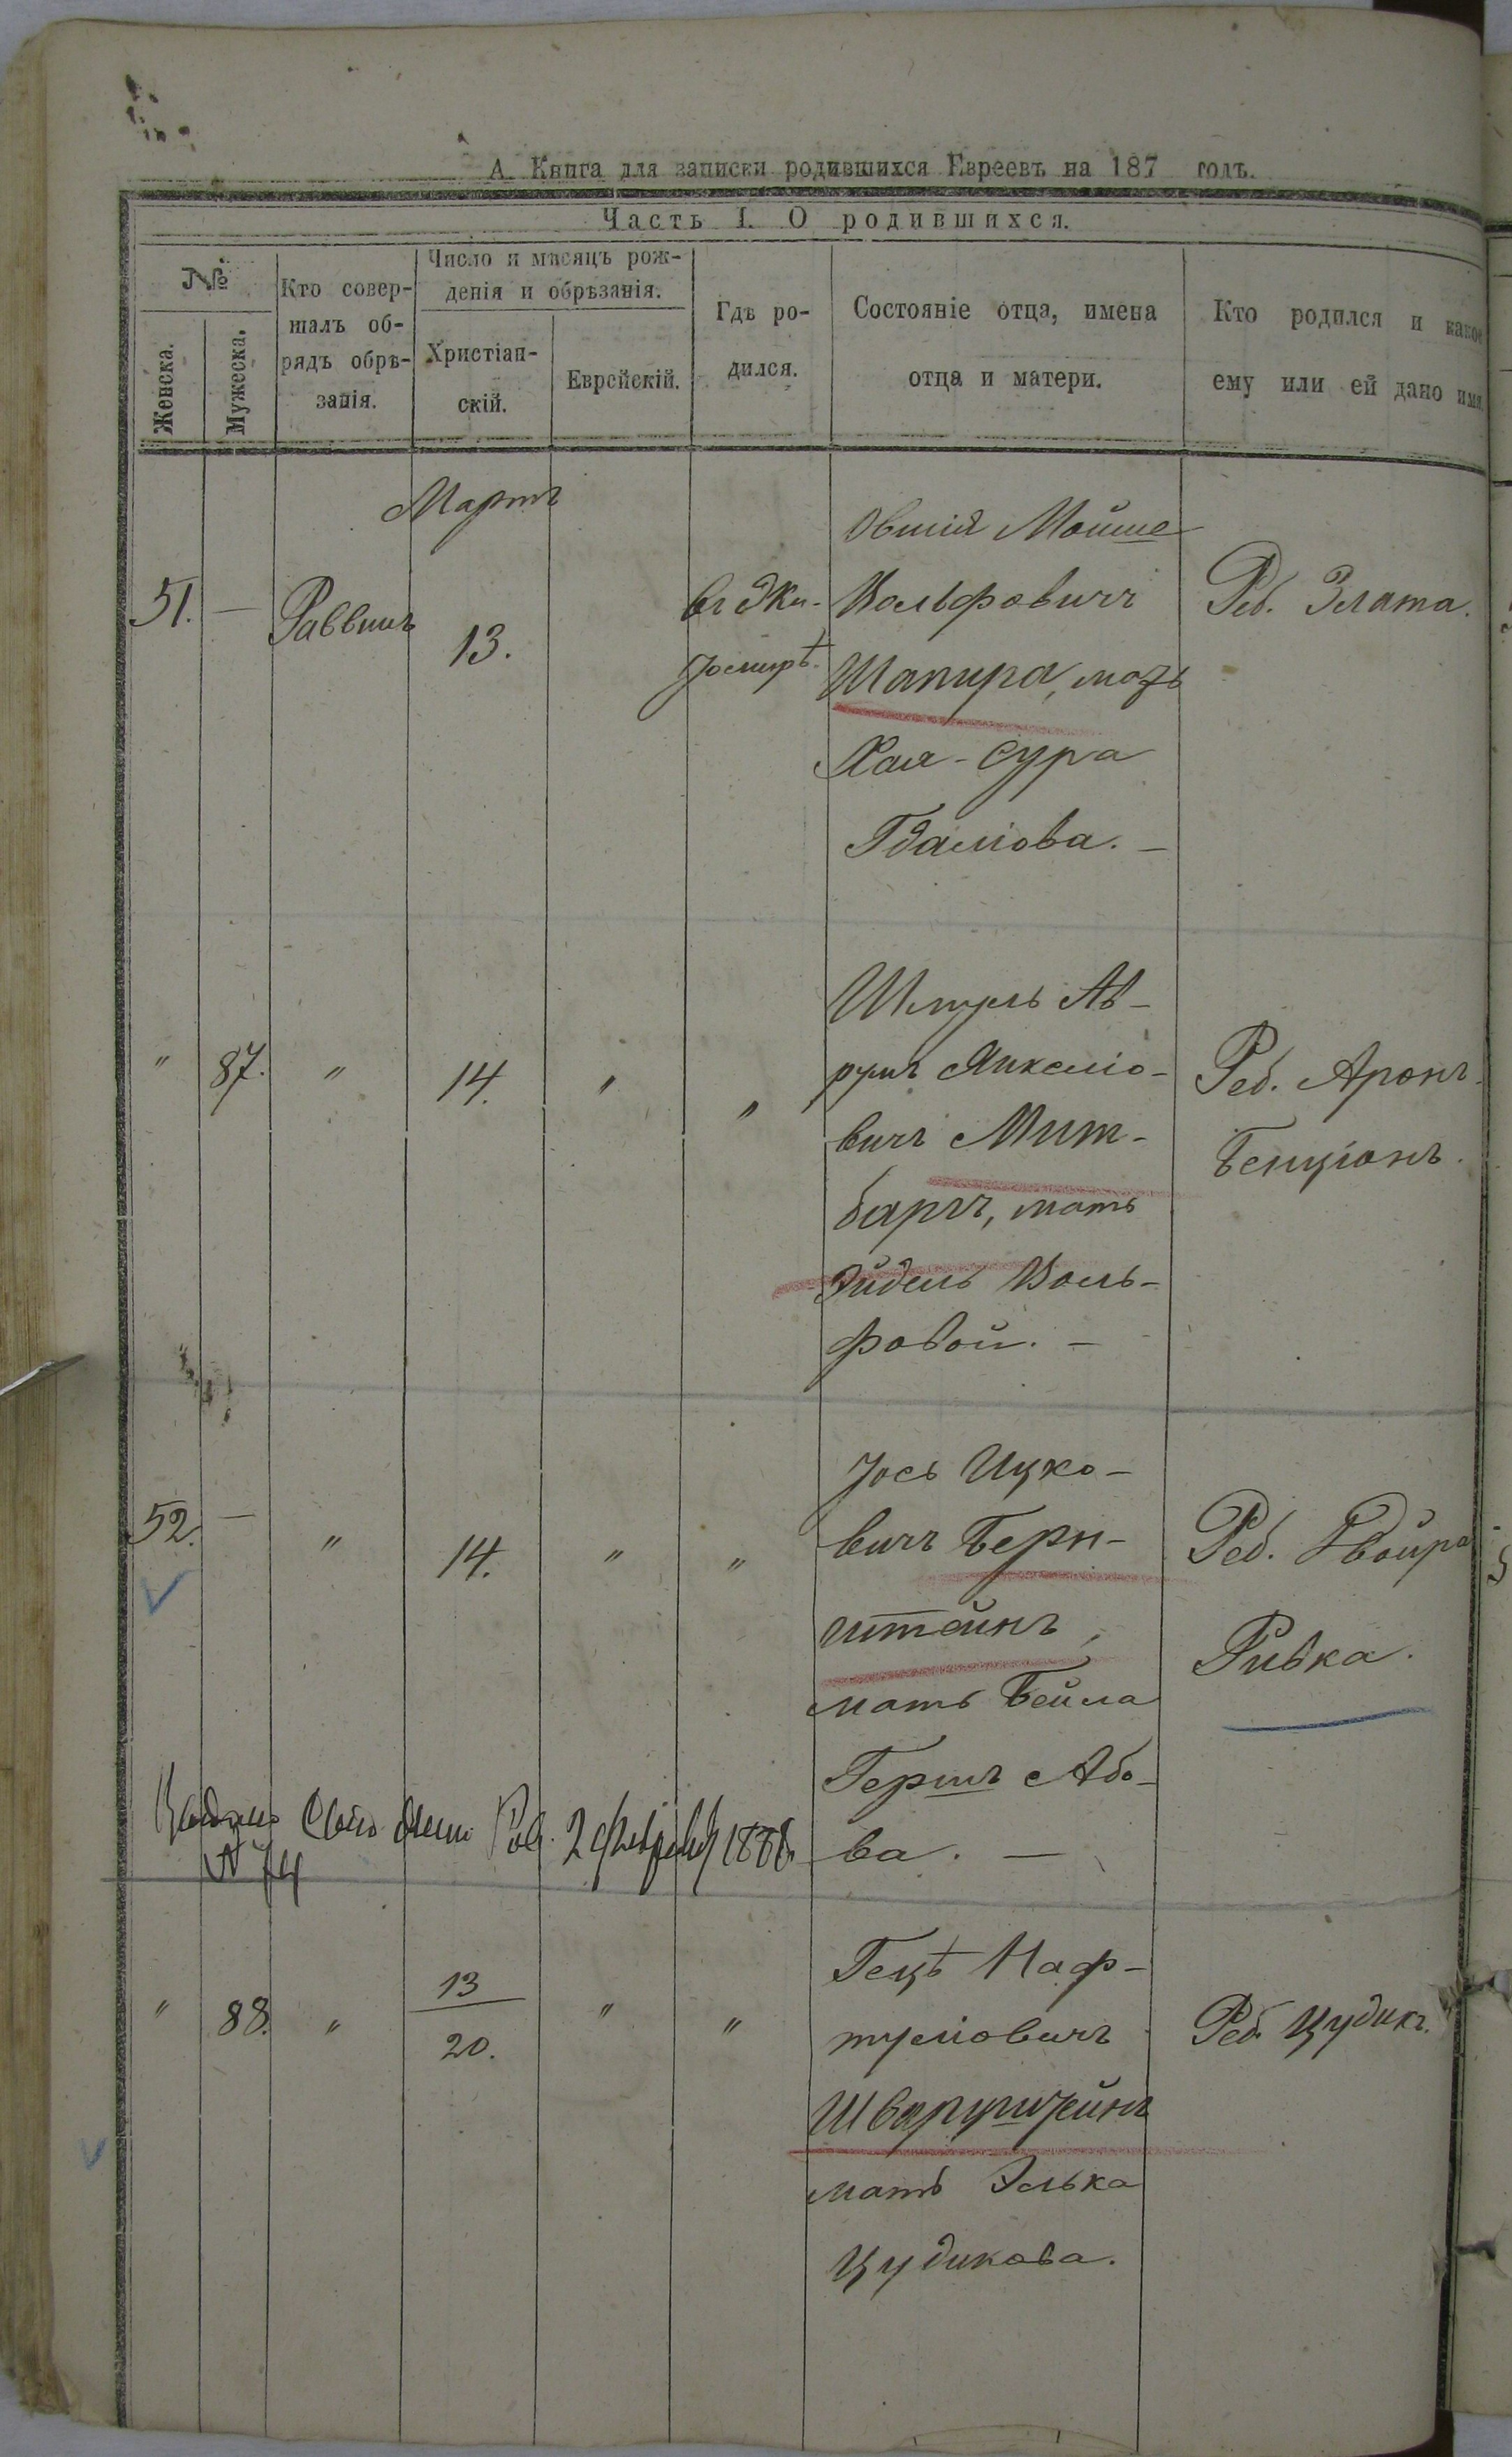 А. Книга для записки родившихся Евреевъ на 187 годъ.
Часть I. О родившихся.
№
Женска.
Мужеска.
Кто совер-
шалъ об-
рядъ обрѣ-
занія.
Число и мѣсяцъ рож-
денія и обрѣзанія.
Христіан-
скій.
Еврейскій.
Гдѣ ро-
дился.
Состояніе отца, имена
отца и матери.
Кто родился и какое
ему или ей дано имя.
Мартъ
51.
—
Раввинъ
13.
въ Жи-
томирѣ.
Овшія Мойше
Вольфовичъ
Шапира, мать
Хая-Сура
Гдаліова. —
Реб. Злата.
"
87.
"
14.
"
"
Шмуль Ав-
румъ Янкеліо-
вичъ Мит-
баргъ, мать
Эйдель Воль-
фовой. —
Реб. Аронъ
Бенціонъ.
52.
—
"
14.
"
"
Іось Ицко-
вичъ Берн-
штейнъ,
мать Бейла
Гершъ Або-
ва. —
Реб. Двойра
Ривка.
2 февраля 1888
№ 74
"
88.
"
13
20.
"
"
Гецъ Наф-
туліовичъ
Шварцштейнъ
мать Элька
Цудикова.
Реб. Цудикъ.